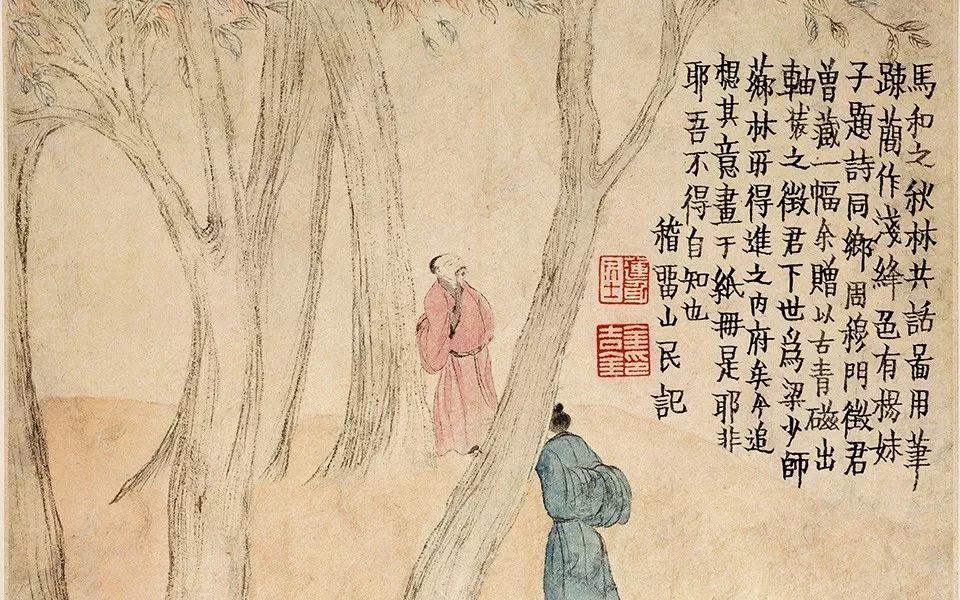 馬和之秋林共話啚用筆
踈蕳作淺絳色有楊妹
子題詩同鄉周穆門徵君
曾藏一幅余贈以古青磁出
軸裝之徵君下世爲梁少師
薌林㪽得進之內府矣今追
想其意畫于紙冊是耶非
耶吾不得自知也
稽畱山民記
金印吉金